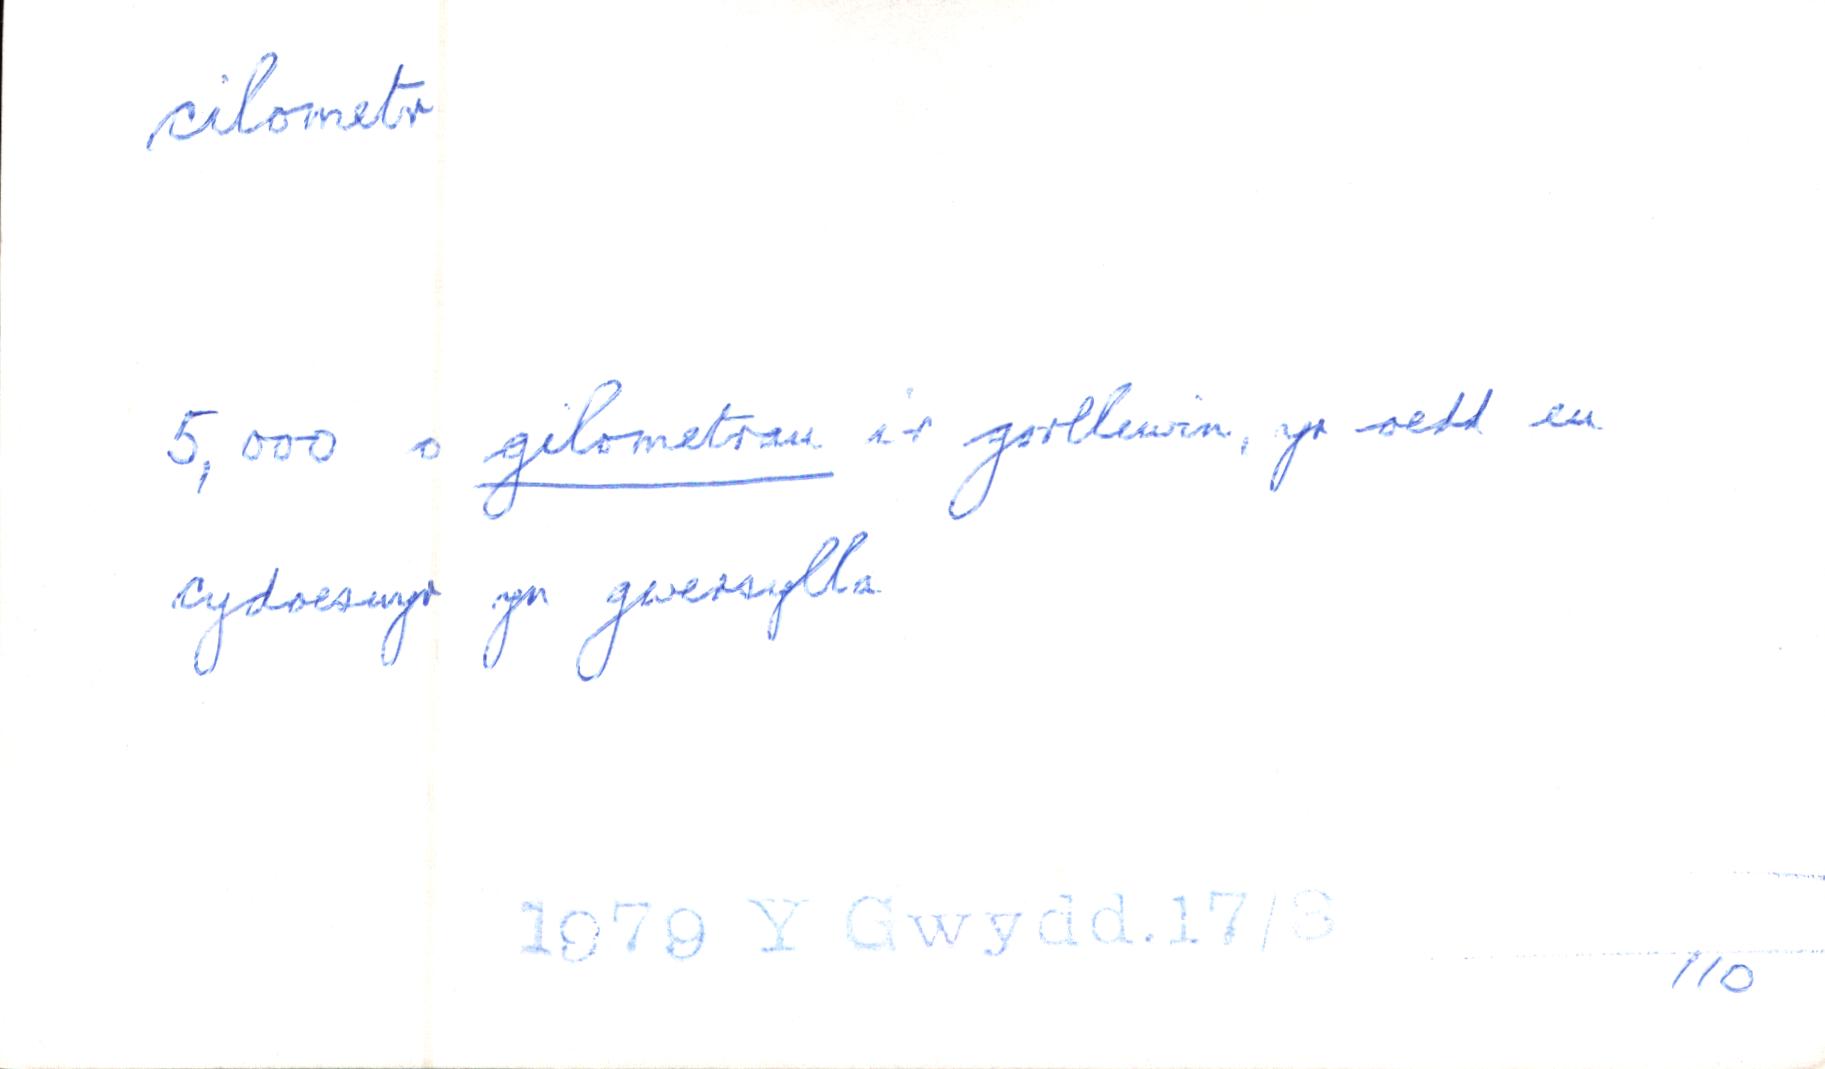 cilometr
5,000 o gilometrau i'r gorllewin, yr oedd eu
cydoeswyr yn gwersylla
1979 Y Gwydd.17/3
110